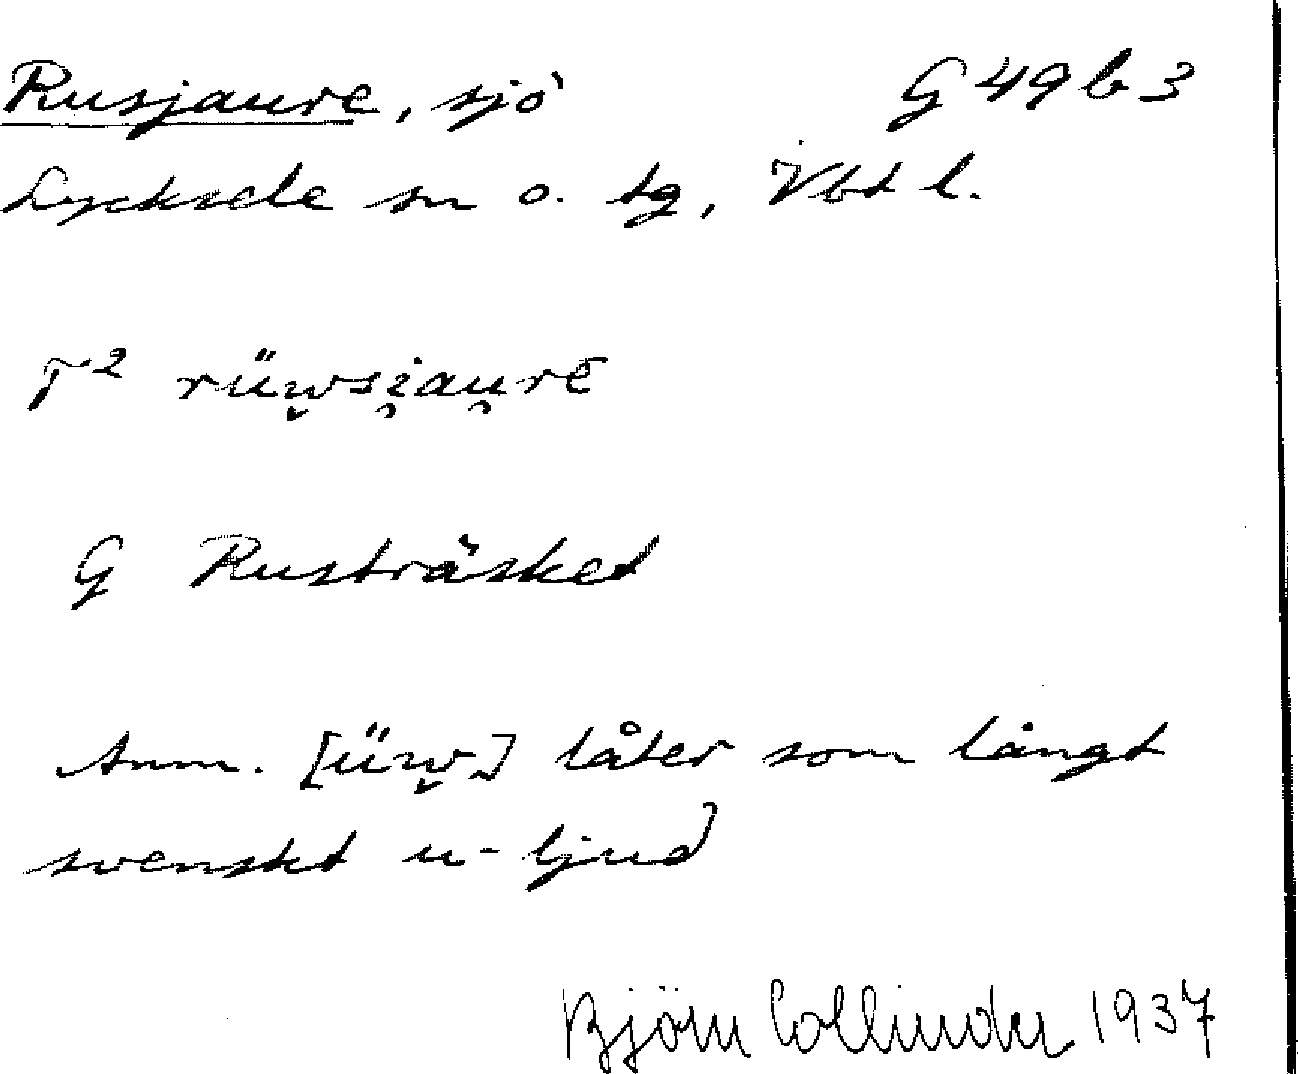 Rusjaure, sjö G 49 b 3
Lycksele sn o. tg, Vbt l.
T² rüw̬si̯au̯rē
G Rusträsket
Anm. [üw̬] låter som långt
svenskt u-ljud
Björn Collinder 1937